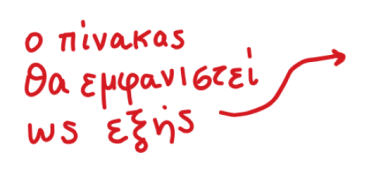 ο πίνακας
θα εμφανιστεί
ως εξής